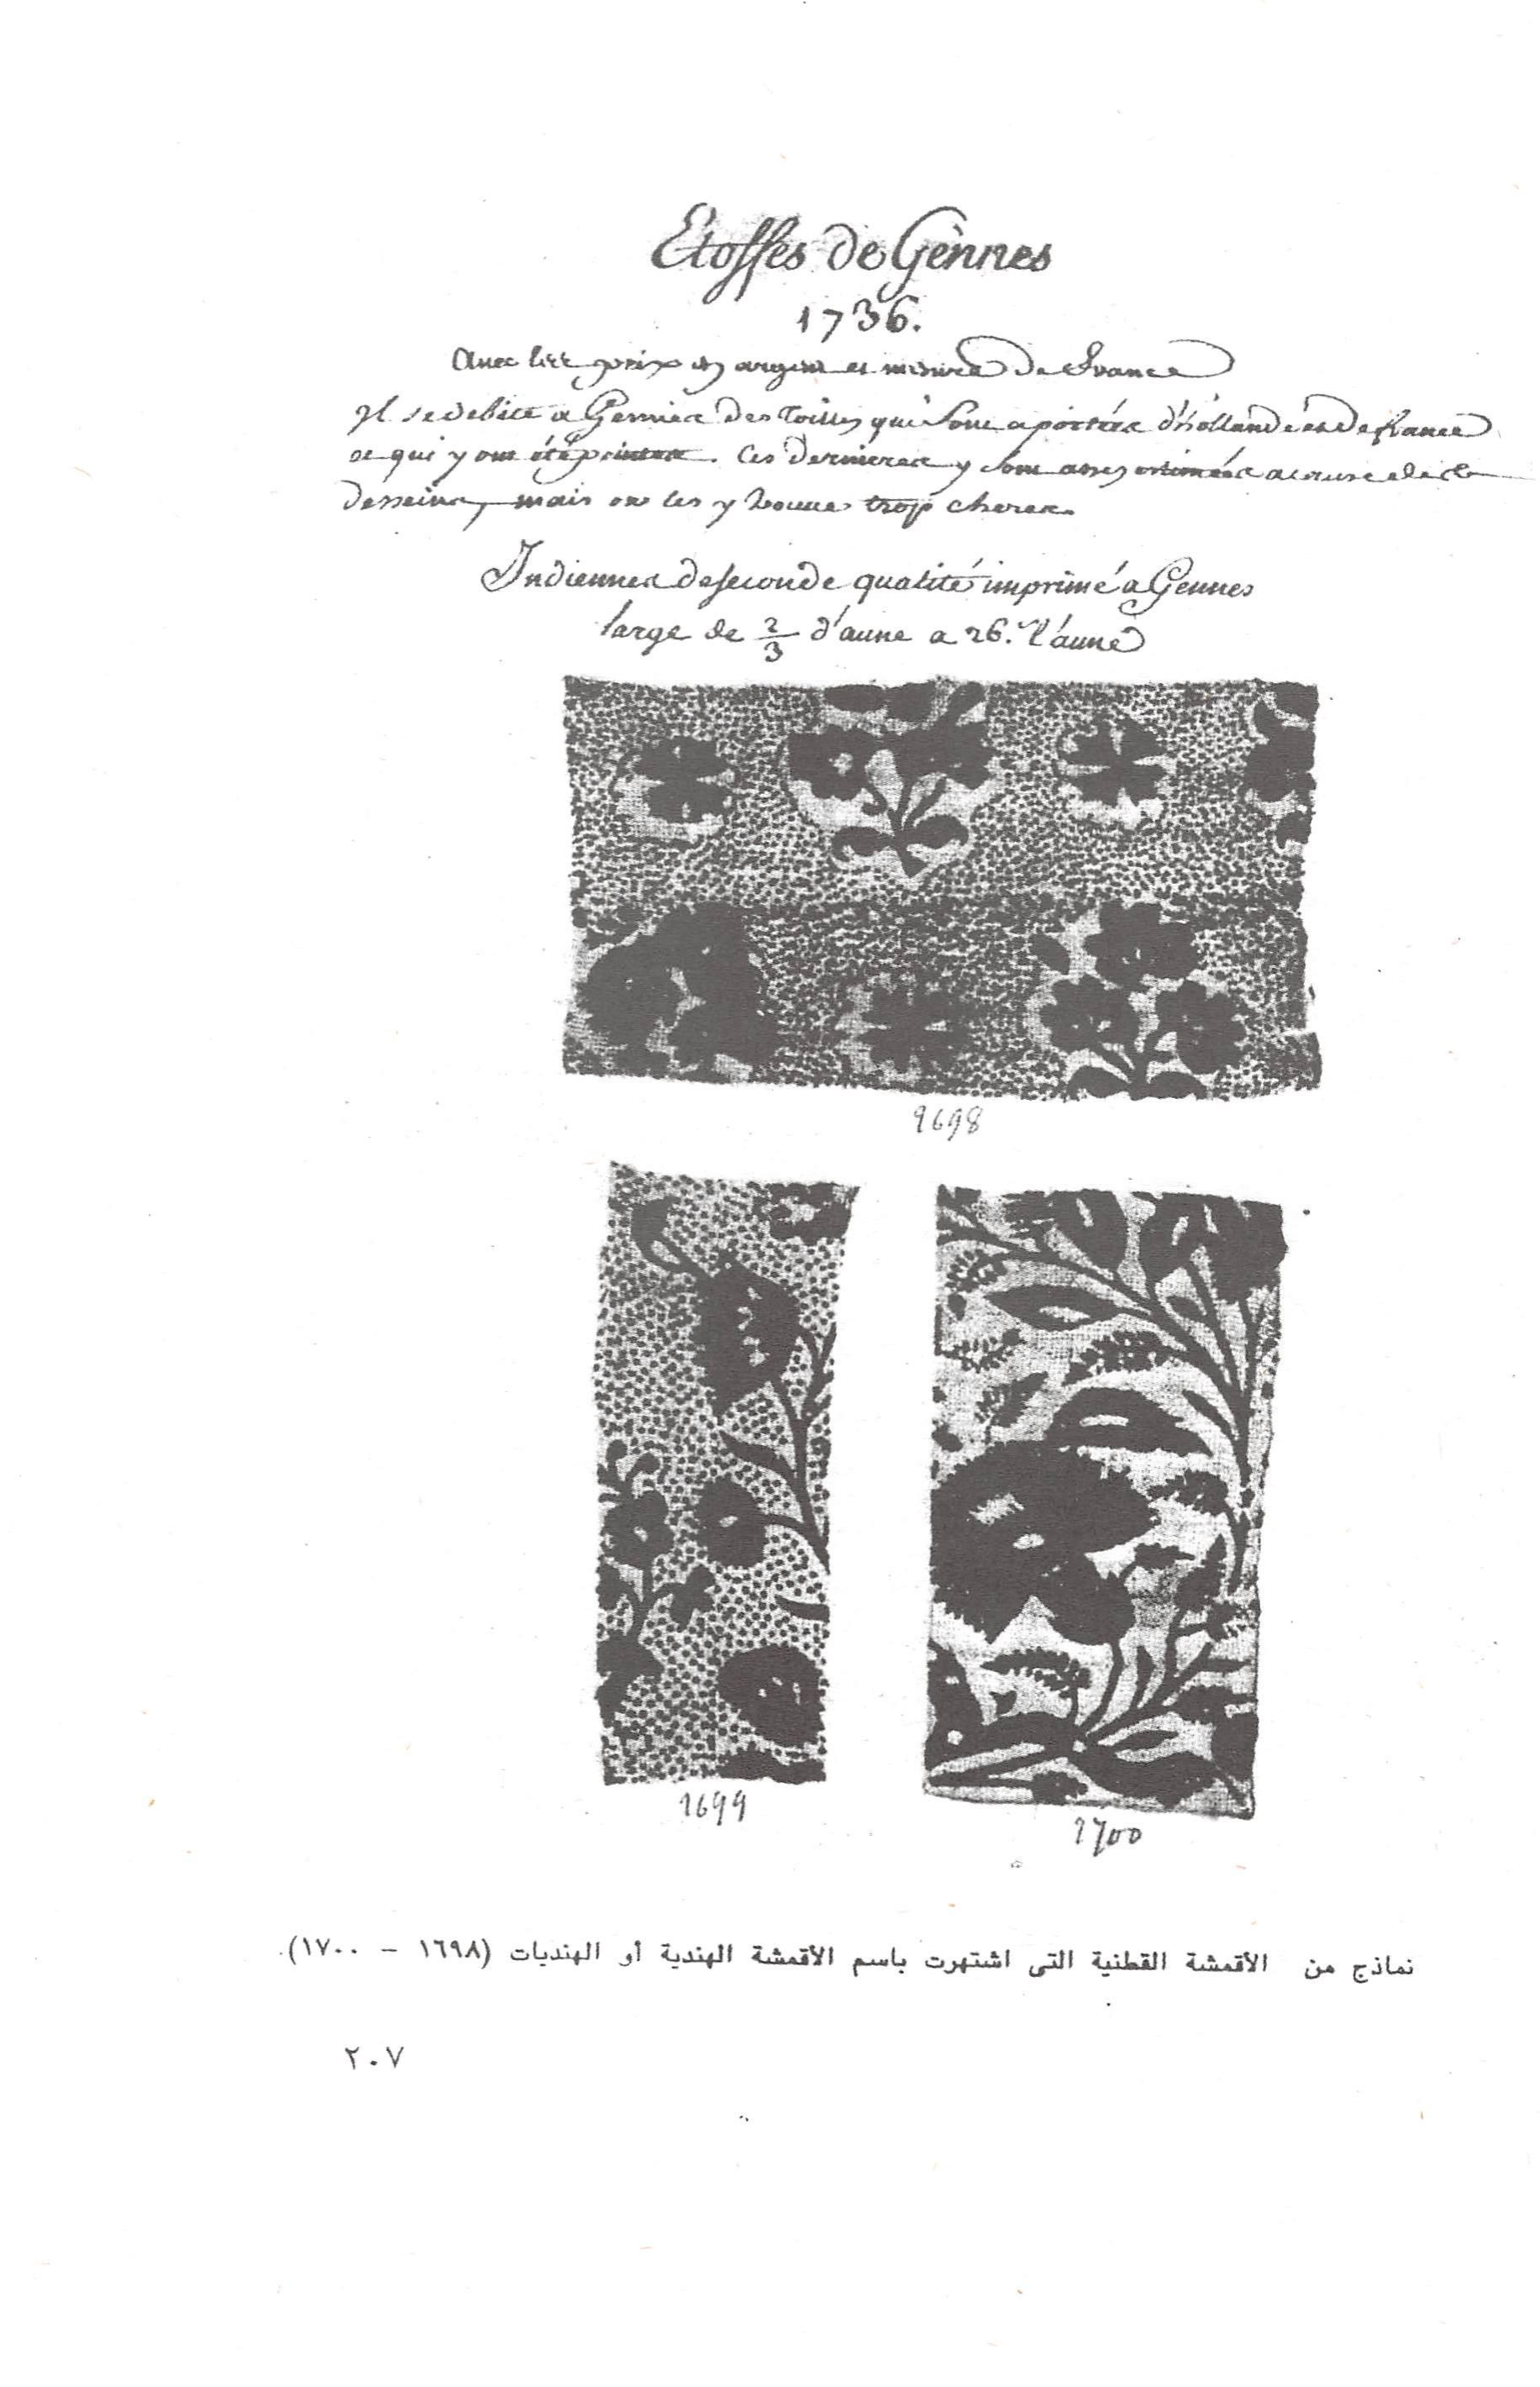 Etoffes de Gènnes
1736.
Avec les prix en argent et mesure de France
Il se debite a Gennes des Toilles qui sont aportées d'hollande et de france
et qui y ont été peintes. Ces dernieres y sont assez estimées a cause de
desseins, mais on les y trouve trop cheres.
Indiennes de seconde qualité imprimé a Gennes
large de 2/3 d'aune a 26. l'aune
1698
1699
1700
نماذج من الأقمشة القطنية التى اشتهرت باسم الأقمشة الهندية أو الهنديات (١٦٩٨ – ١٧٠٠).
٢٠٧